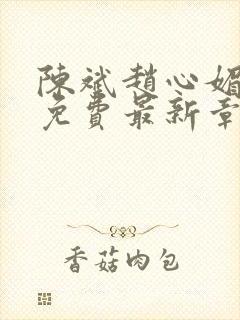 陳斌趙心媚
免費最新章
香菇肉包